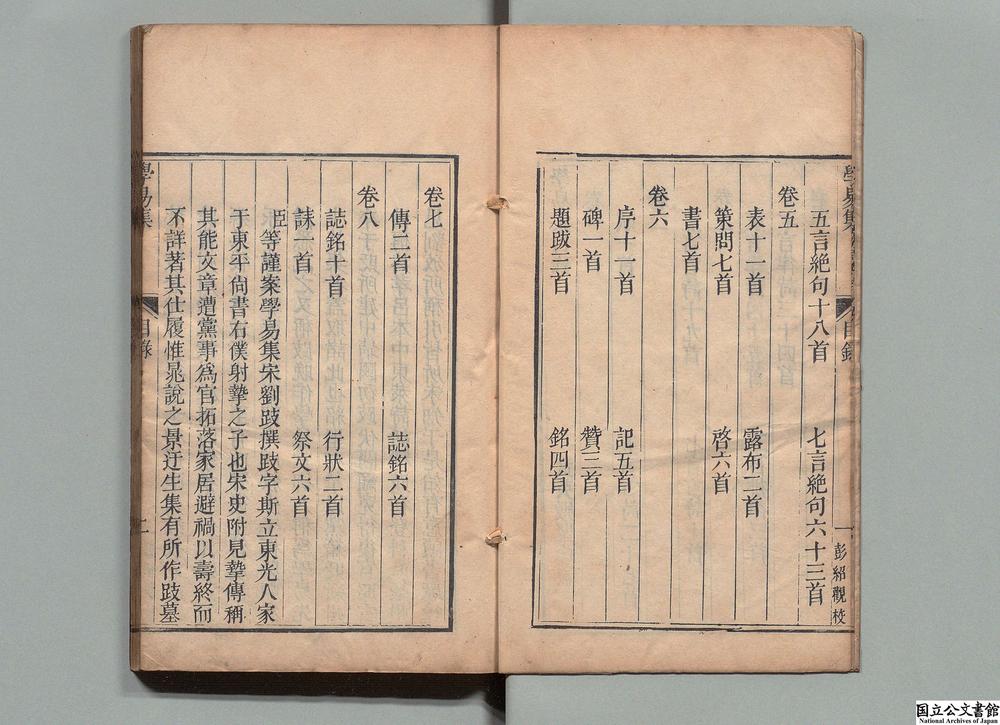 五言絶句十八首　七言絶句六十三首
卷五
表十一首　露布二首
策問七首　啓六首
書七首
卷六
序十一首　記五首
碑一首　贊三首
題跋三首　銘四首
學易集
目錄
一
彭紹觀校
卷七
傳二首　誌銘六首
卷八
誌銘十首　行狀二首
誄一首　祭文六首
臣等謹案學易集宋劉跂撰跂字斯立東光人家
于東平尚書右僕射摯之子也宋史附見摯傳稱
其能文章遭黨事為官拓落家居避禍以壽終而
不詳著其仕履惟晁說之景迂生集有所作跂墓
學易集
目錄
二
国立公文書館
National Archives of Japan